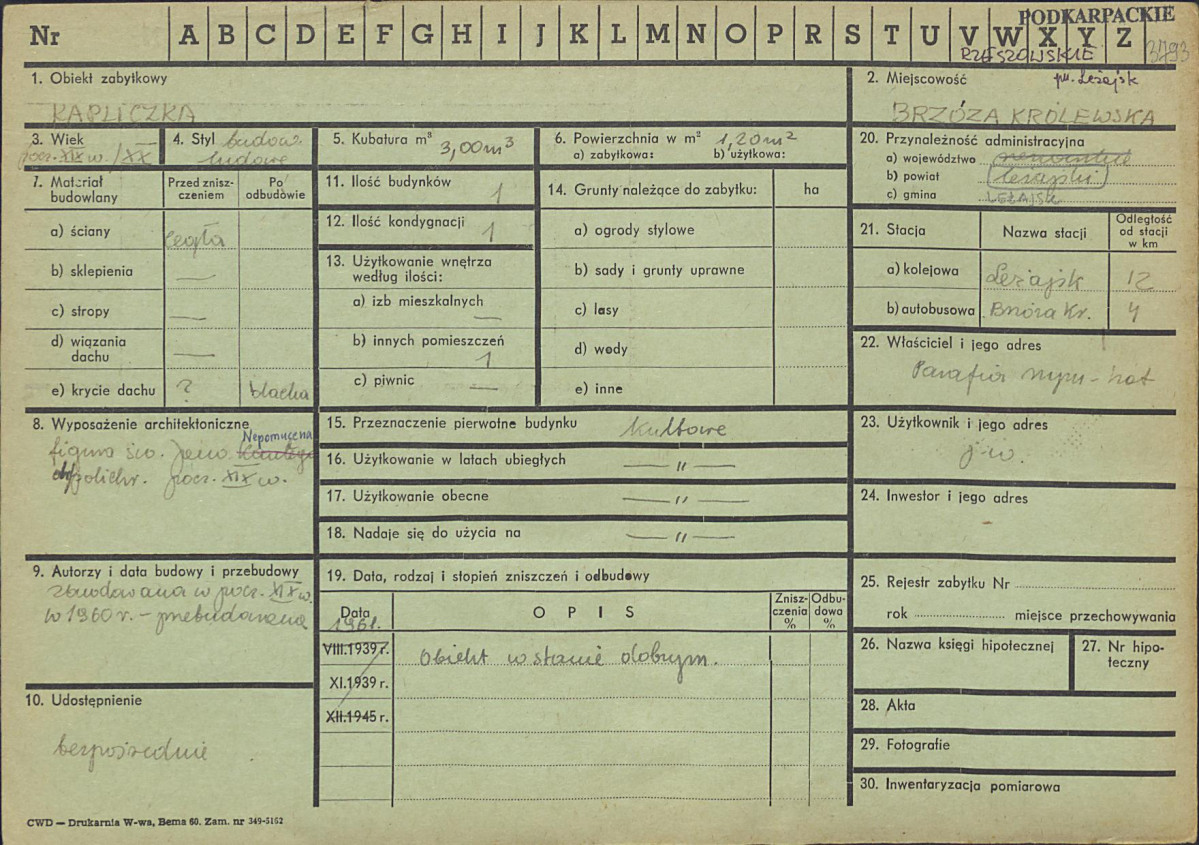 PODKARPACKIE
Nr A B C D E F G H I J K L M N O P R S T U V W X Y Z
RZESZOWSKIE 3793
1. Obiekt zabytkowy
KAPLICZKA
2. Miejscowość pw. Leżajsk
BRZÓZA KRÓLEWSKA
3. Wiek
pocz. XIX w. / XX
4. Styl budow.
ludowe
5. Kubatura m³ 3,00 m³
6. Powierzchnia w m² 1,20 m²
a) zabytkowa: b) użytkowa:
7. Materiał budowlany
Przed zniszczeniem
Po odbudowie
a) ściany cegła
b) sklepienia —
c) stropy —
d) wiązania dachu —
e) krycie dachu ? blacha
8. Wyposażenie architektoniczne
Nepomucena
figura św. Jana
polichr. pocz. XIX w.
9. Autorzy i data budowy i przebudowy
zbudowana w pocz. XIX w.
w 1960 r. – przebudowana
10. Udostępnienie
bezpośrednie
11. Ilość budynków 1
12. Ilość kondygnacji 1
13. Użytkowanie wnętrza według ilości:
a) izb mieszkalnych —
b) innych pomieszczeń 1
c) piwnic —
14. Grunty należące do zabytku: ha
a) ogrody stylowe
b) sady i grunty uprawne
c) lasy
d) wody
e) inne
15. Przeznaczenie pierwotne budynku kultowe
16. Użytkowanie w latach ubiegłych — " —
17. Użytkowanie obecne — " —
18. Nadaje się do użycia na — " —
19. Data, rodzaj i stopień zniszczeń i odbudowy
Data
OPIS
Zniszczenia %
Odbudowa %
1961.
VIII.1939 r. Obiekt w stanie dobrym.
XI.1939 r.
XII.1945 r.
20. Przynależność administracyjna
a) województwo
b) powiat leżajski
c) gmina LEŻAJSK
21. Stacja
Nazwa stacji
Odległość od stacji w km
a) kolejowa Leżajsk 12
b) autobusowa Brzóza Kr. 4
22. Właściciel i jego adres
Parafia rzym-kat
23. Użytkownik i jego adres
j.w.
24. Inwestor i jego adres
-
25. Rejestr zabytku Nr
rok miejsce przechowywania
26. Nazwa księgi hipotecznej
27. Nr hipoteczny
28. Akta
29. Fotografie
30. Inwentaryzacja pomiarowa
CWD — Drukarnia W-wa, Bema 60. Zam. nr 349-5162